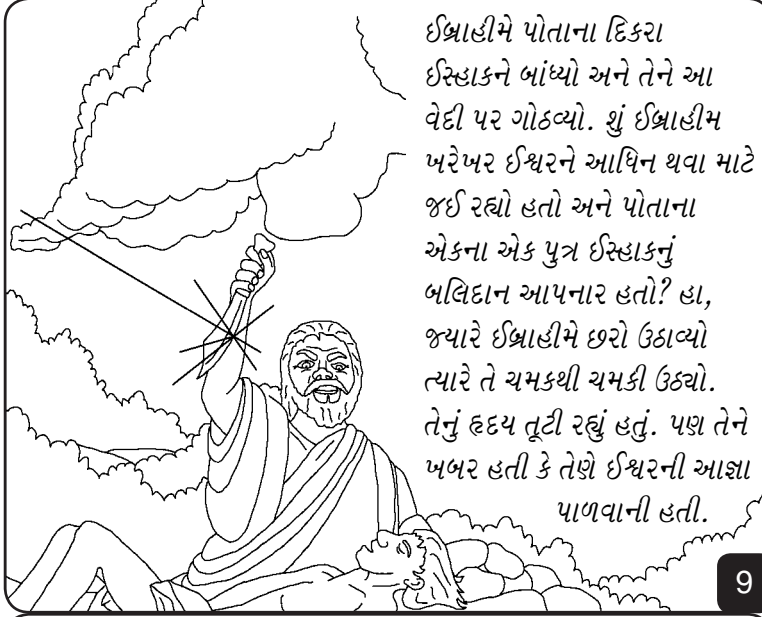 ઈબ્રાહીમે પોતાના દિકરા
ઈસ્હાકને બાંધ્યો અને તેને આ
વેદી પર ગોઠવ્યો. શું ઈબ્રાહીમ
ખરેખર ઈશ્વરને આધિન થવા માટે
જઈ રહ્યો હતો અને પોતાના
એકના એક પુત્ર ઈસ્હાકનું
બલિદાન આપનાર હતો? હા,
જ્યારે ઈબ્રાહીમે છરો ઉઠાવ્યો
ત્યારે તે ચમકથી ચમકી ઉઠ્યો.
તેનું હૃદય તૂટી રહ્યું હતું. પણ તેને
ખબર હતી કે તેણે ઈશ્વરની આજ્ઞા
પાળવાની હતી.
9